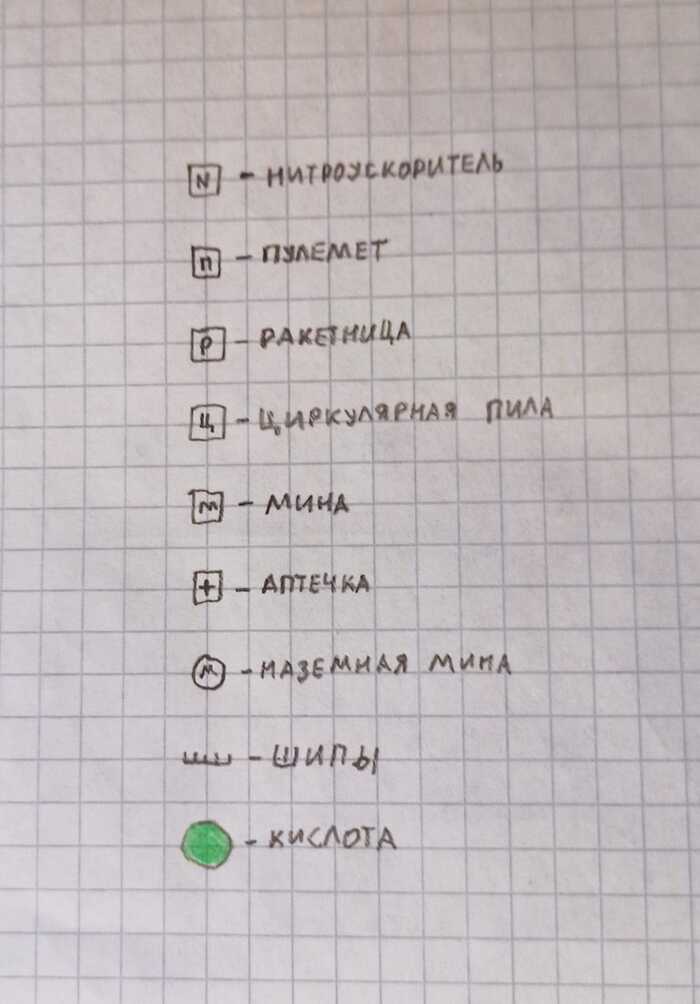 N - НИТРОУСКОРИТЕЛЬ
П - ПУЛЕМЕТ
Р - РАКЕТНИЦА
Ц - ЦИРКУЛЯРНАЯ ПИЛА
М - МИНА
+ - АПТЕЧКА
М - НАЗЕМНАЯ МИНА
- ШИПЫ
- КИСЛОТА